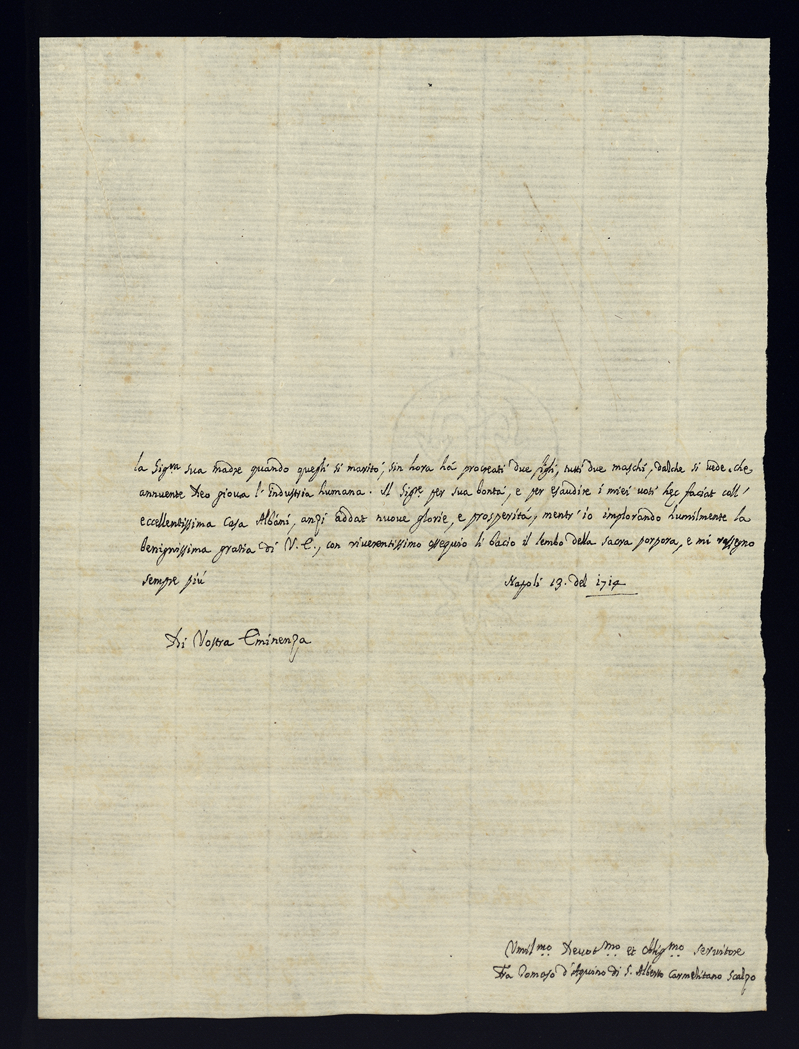 la Sig.ra sua madre quando quegli si maritò; sin hora há procreati due figli, tutti due maschi, dalche si uede, che
annuente Deo gioua l'industria humana. Il Sig.re per sua bontá, e per esaudire i miei uoti hęc faciat coll'
eccellentissima Casa Albani, anzi addat nuoue glorie, e prosperitá, mentr'io implorando humilmente la
benignissima gratia di V. E., con riuerentissimo ossequio li bacio il lembo della sacra porpora, e mi rassegno
sempre più Napoli 13. del 1714
Di Vostra Eminenza
Umil.mo Deuot.mo et Oblig.mo Seruitore
Fra Tomaso d'Aquino di S. Alberto Carmelitano Scalzo